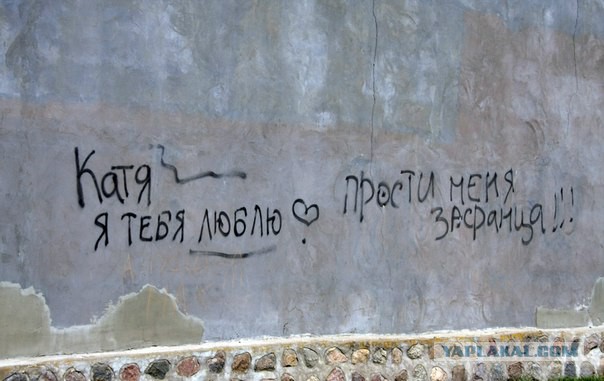 Катя
я тебя люблю ♡
прости меня
засранца!!!
YAPLAKAL.COM